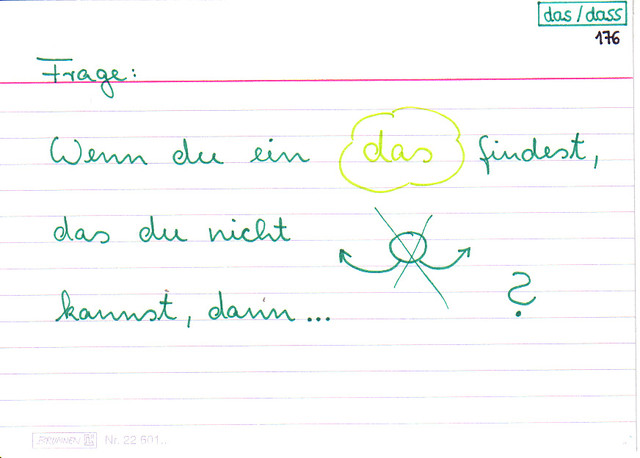 das/dass
176
Frage:
Wenn du ein das findest,
das du nicht
kannst, dann...
?
BRUNNEN Nr. 22 601..